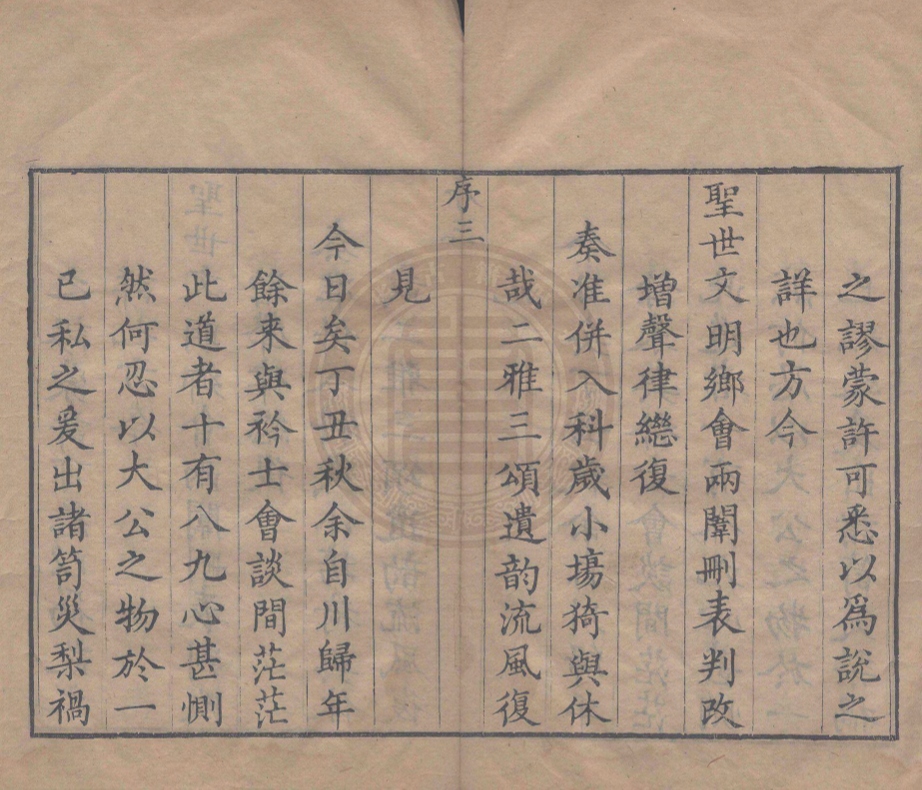 之謬蒙許可悉以爲說之
詳也方今
聖世文明鄉會兩闈刪表判改
增聲律繼復
奏准併入科歲小塲猗與休
哉二雅三頌遺韵流風復
序三
見
今日矣丁丑秋余自川歸年
餘来與衿士會談間茫茫
此道者十有八九心甚惻
然何忍以大公之物於一
已私之爰出諸笥災梨禍